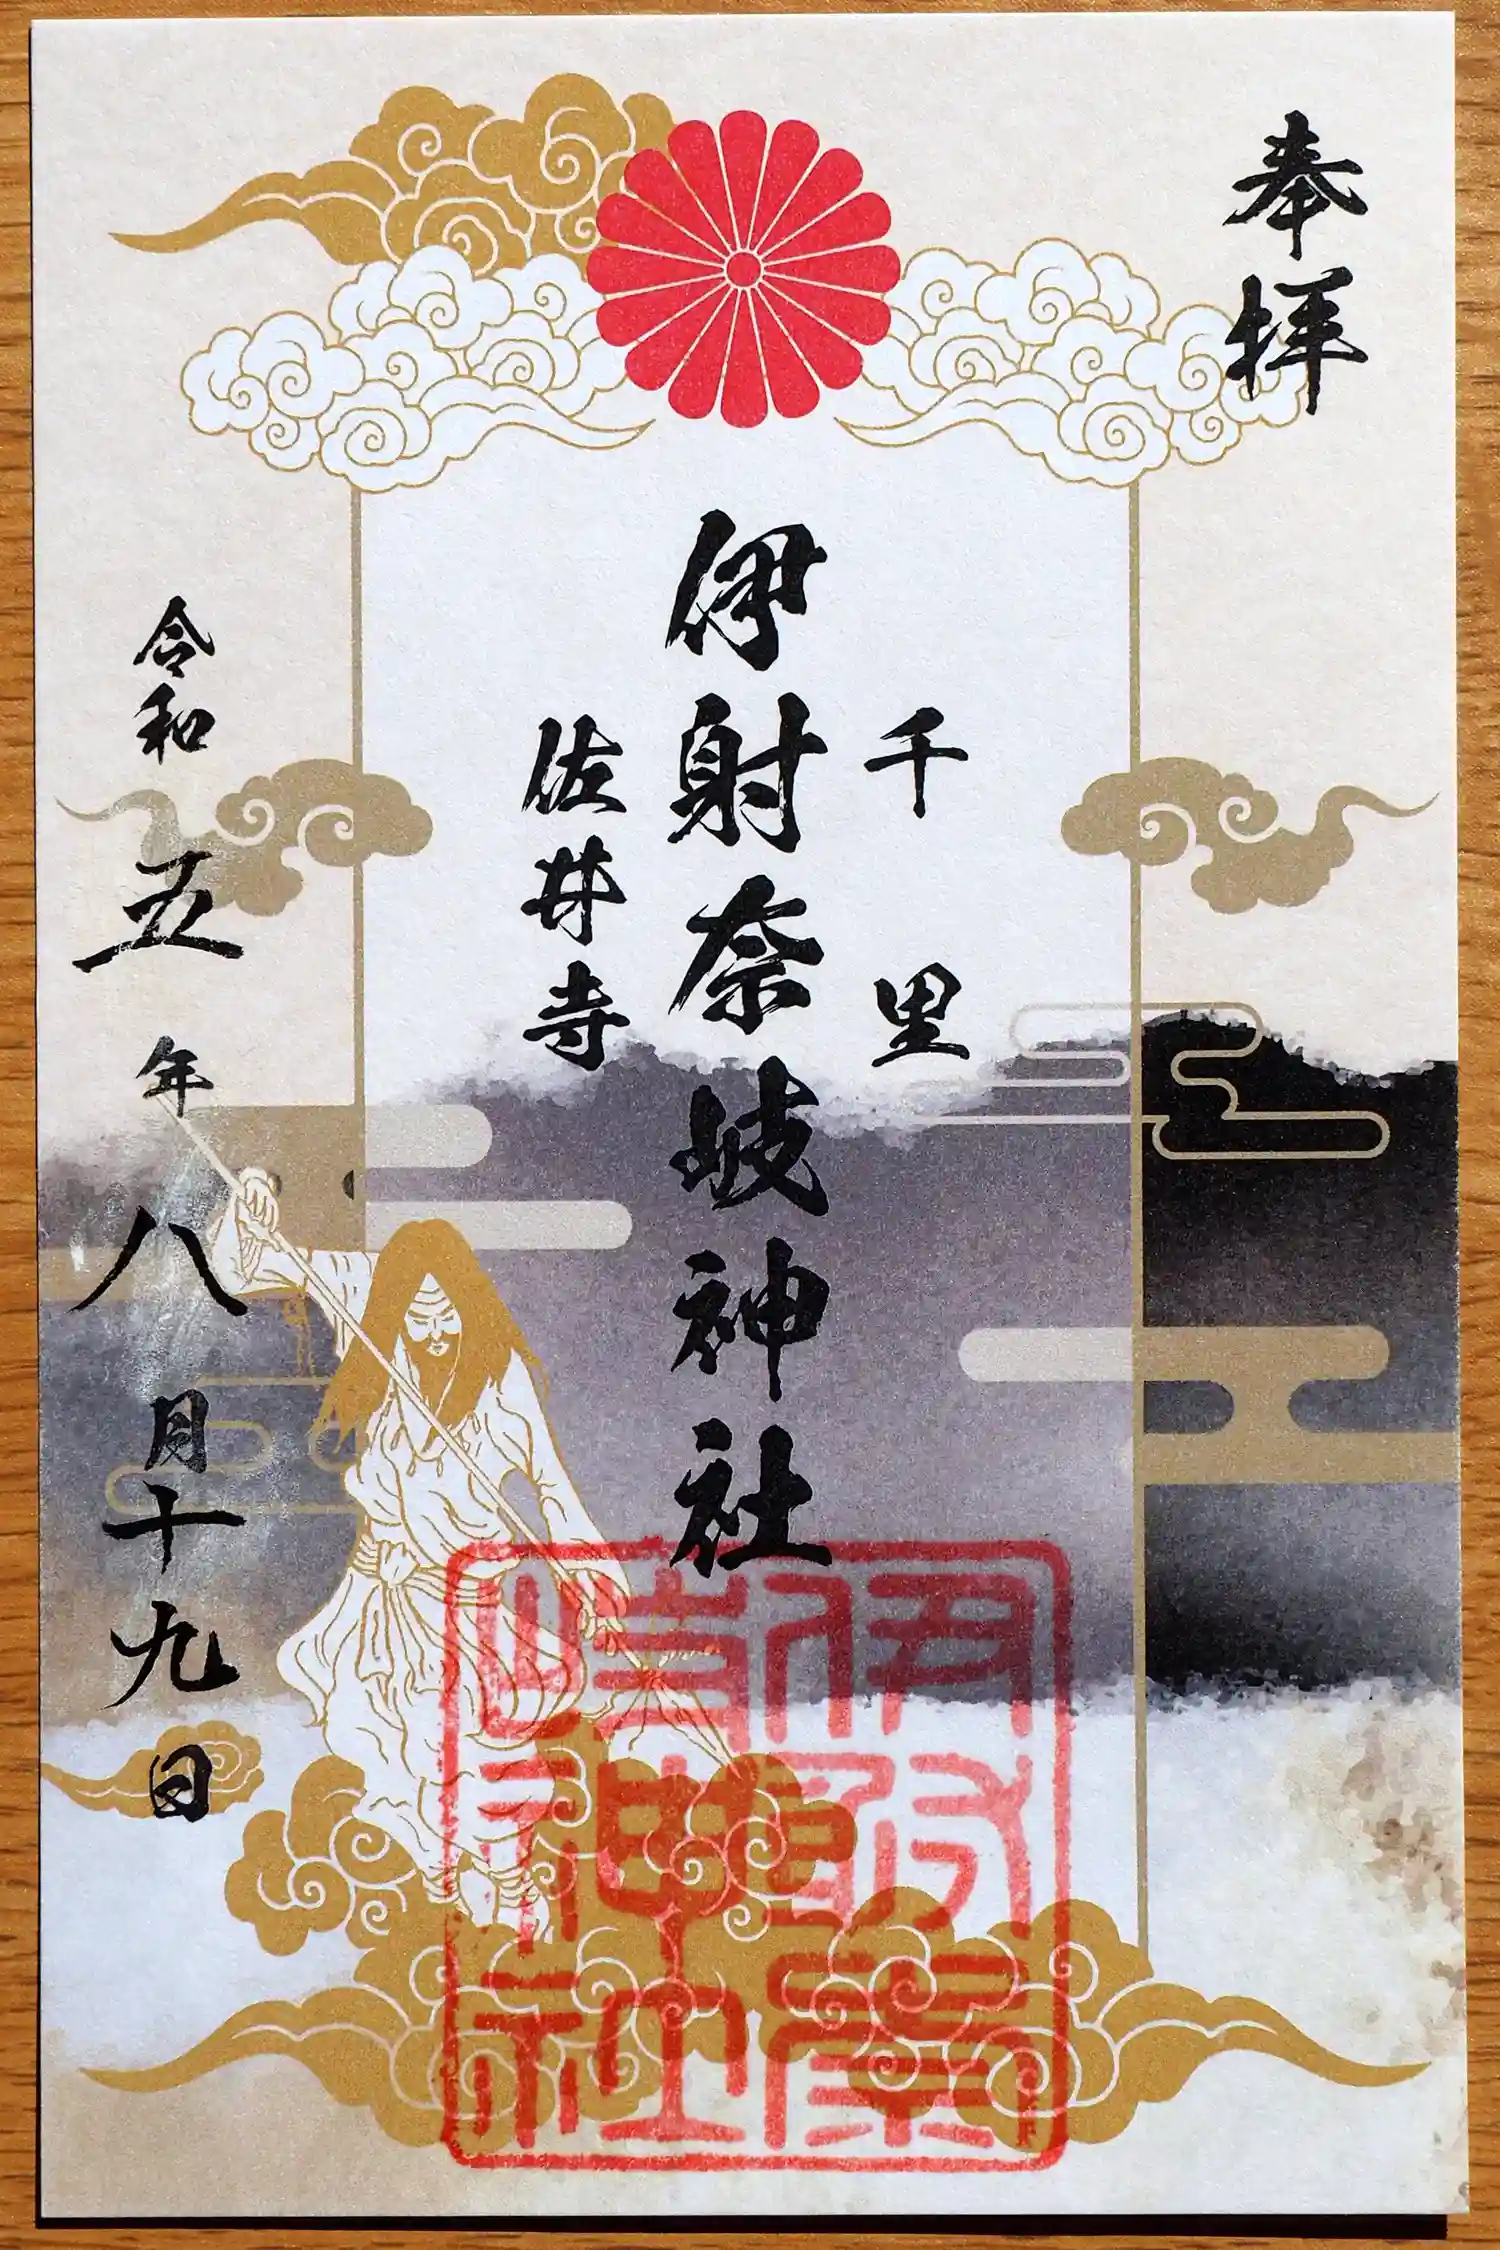 奉拝
千里
伊射奈岐神社
佐井寺
令和五年八月十九日
伊射奈
岐神社